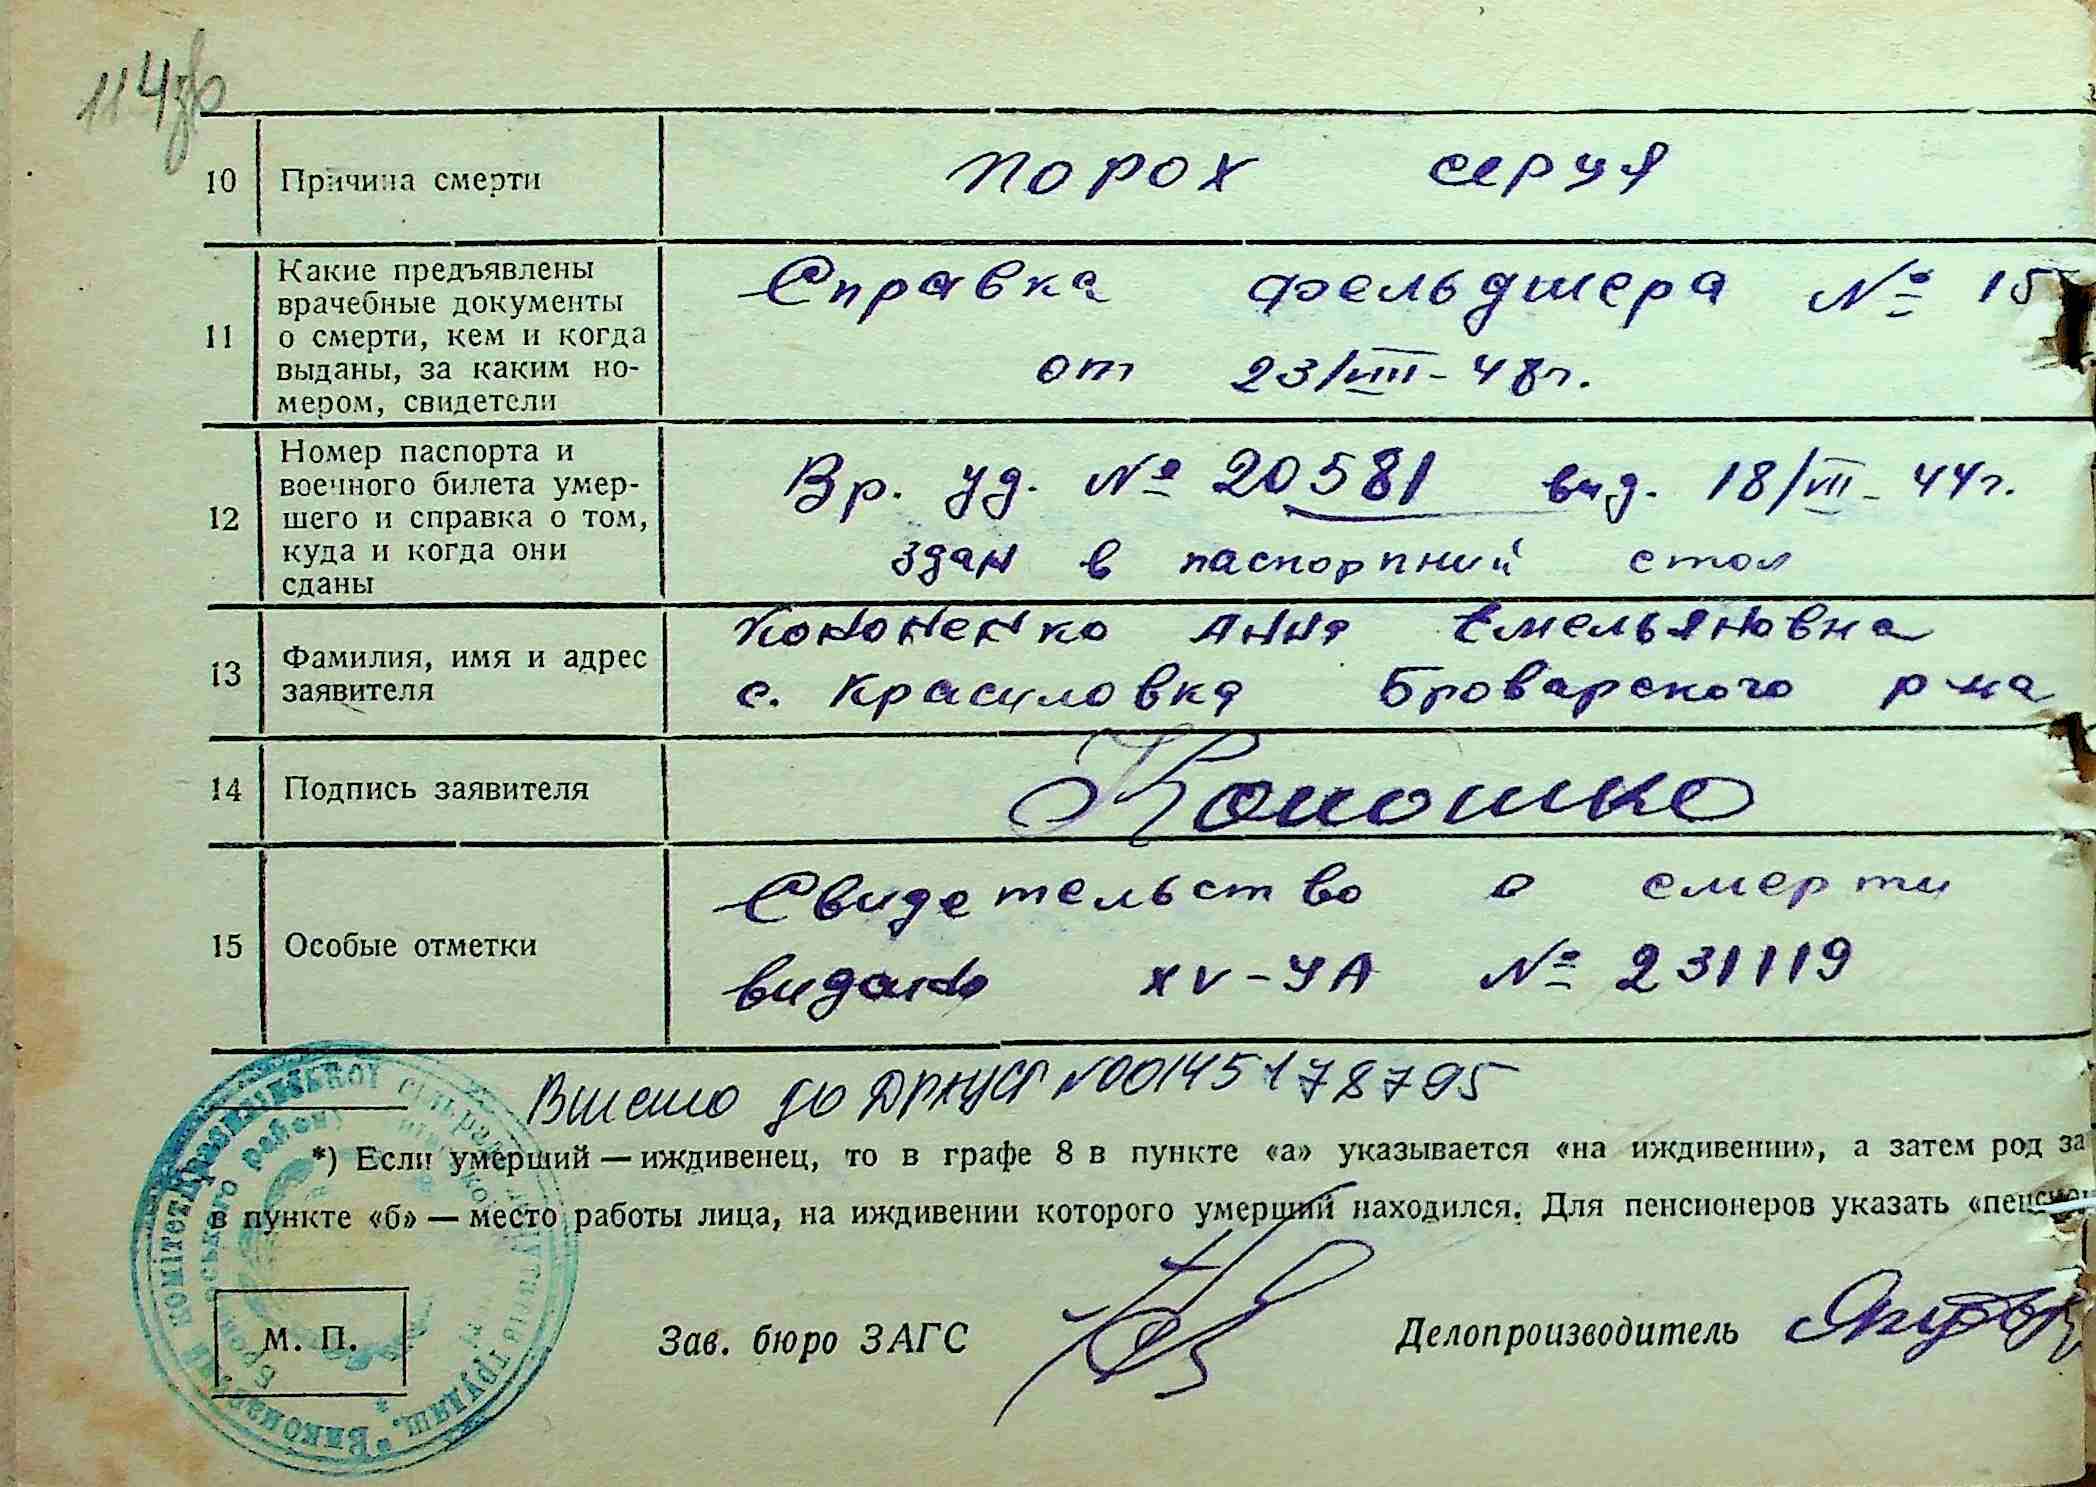 114зв
10 Причина смерти порох серця
11 Какие предъявлены врачебные документы о смерти, кем и когда выданы, за каким но-мером, свидетели
Справка фельдшера № 15
от 23/VIII-48г.
12 Номер паспорта и военного билета умер-шего и справка о том, куда и когда они сданы
Вр. уд. № 20581 вид. 18/VII-44г.
здан в паспортний стол
13 Фамилия, имя и адрес заявителя
Кононенко Анна Емельяновна
с. Красиловка Броварского р-на
14 Подпись заявителя
15 Особые отметки
Свидетельство о смерти
видано XV-УА № 231119
Внесено до ДРАЦСГ №00145178795
*) Если умерший — иждивенец, то в графе 8 в пункте «а» указывается «на иждивении», а затем род за
в пункте «б» — место работы лица, на иждивении которого умерший находился. Для пенсионеров указать «пенсион
М. П. Зав. бюро ЗАГС Делопроизводитель